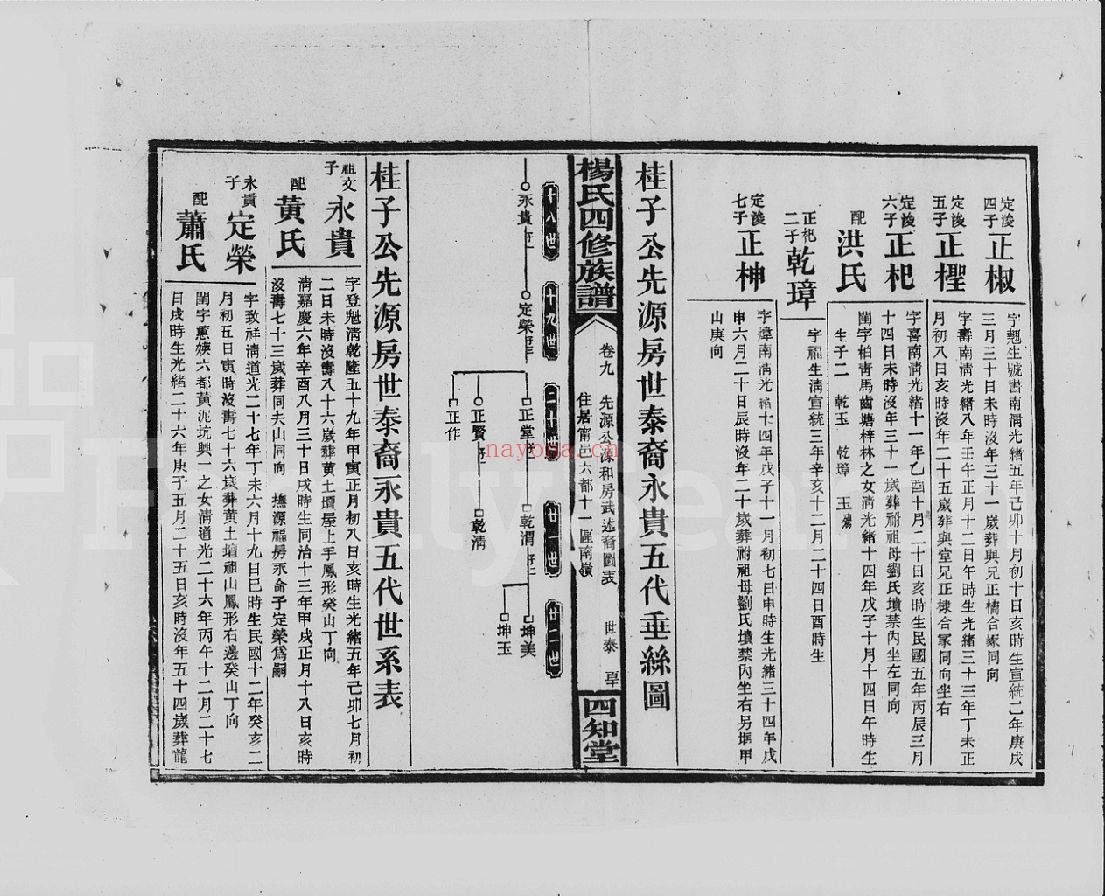 定淩四子
正椒
字魁生號書南淸光緒五年己卯十月初十日亥時生宣統二年庚戌
三月三十日未時沒年三十一歲葬與兄正橋合冢同向
定淩五子
正檉
字壽南淸光緒八年壬午正月十二日午時生光緒三十三年丁未正
月初八日亥時沒年二十五歲葬與堂兄正棣合冢同向坐右
定淩六子
正杞
字喜南淸光緒十一年乙酉十月二十日亥時生民國五年丙辰三月
十四日未時沒年三十一歲葬祔祖母劉氏墳禁內坐左同向
配
洪氏
閨字柏靑馬齒塘梓林之女淸光緒十四年戊子十月十四日午時生
生子二 乾玉 乾璋 玉殤
正杞二子
乾璋
字福生淸宣統三年辛亥十二月二十四日酉時生
定淩七子
正柛
字葦南淸光緒十四年戊子十一月初七日申時生光緒三十四年戊
申六月二十日辰時沒年二十歲葬祔祖母劉氏墳禁內坐右另堆甲
山庚向
桂子公先源房世泰裔永貴五代垂絲圖
楊氏四修族譜
卷九
先源公添和房武述裔圖表
住居甯邑六都十一區南嶺
世泰
四知堂
十八世
十九世
二十世
廿一世
廿二世
永貴
定榮
正堂
正賢
正作
乾渭
乾淸
坤美
坤玉
nayona.cn
桂子公先源房世泰裔永貴五代世系表
祖文子
永貴
字登魁淸乾隆五十九年甲寅正月初八日亥時生光緒五年己卯七月初
二日未時沒壽八十六歲葬黄土壇屋上手鳳形癸山丁向
配
黄氏
淸嘉慶六年辛酉八月三十日戌時生同治十三年甲戌正月十八日亥時
沒壽七十三歲葬同夫山同向 撫源福房永命子定榮爲嗣
永貴子
定榮
字致祥淸道光二十七年丁未六月十九日巳時生民國十二年癸亥二
月初五日寅時沒壽七十六歲葬黄土壇祖山鳳形右邊癸山丁向
配
蕭氏
閨字蕙媖六都黄泥坑興一之女淸道光二十六年丙午十二月二十七
日戌時生光緒二十六年庚子五月二十五日亥時沒年五十四歲葬龍
FamilySearch